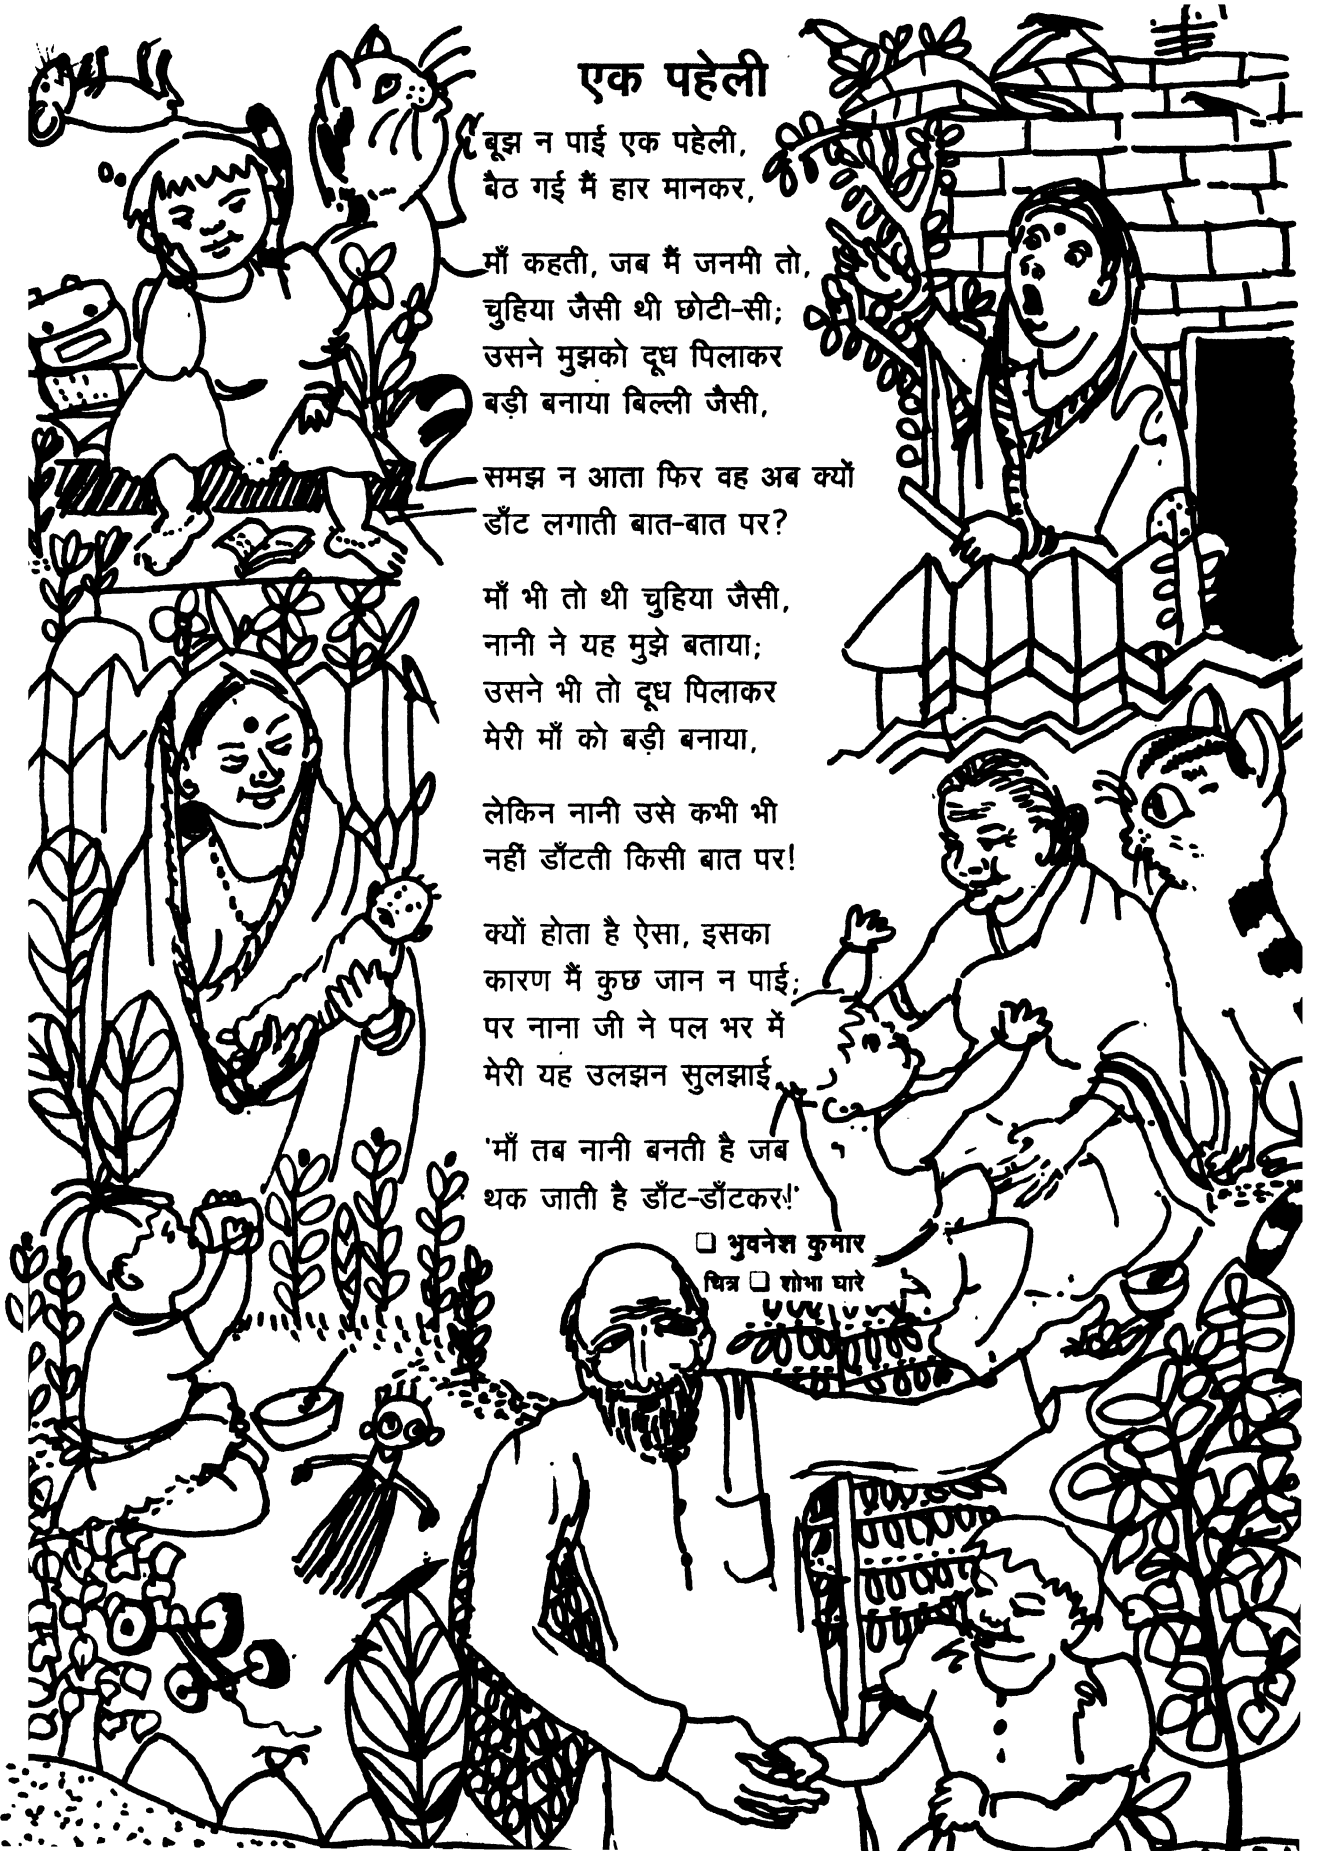 एक पहेली
बूझ न पाई एक पहेली,
बैठ गई मैं हार मानकर,
माँ कहती, जब मैं जनमी तो,
चुहिया जैसी थी छोटी-सी;
उसने मुझको दूध पिलाकर
बड़ी बनाया बिल्ली जैसी,
समझ न आता फिर वह अब क्यों
डाँट लगाती बात-बात पर?
माँ भी तो थी चुहिया जैसी,
नानी ने यह मुझे बताया;
उसने भी तो दूध पिलाकर
मेरी माँ को बड़ी बनाया,
लेकिन नानी उसे कभी भी
नहीं डाँटती किसी बात पर!
क्यों होता है ऐसा, इसका
कारण मैं कुछ जान न पाई;
पर नाना जी ने पल भर में
मेरी यह उलझन सुलझाई,
'माँ तब नानी बनती है जब
थक जाती है डाँट-डाँटकर!'
❑ भुवनेश कुमार
चित्र ❑ शोभा घारे